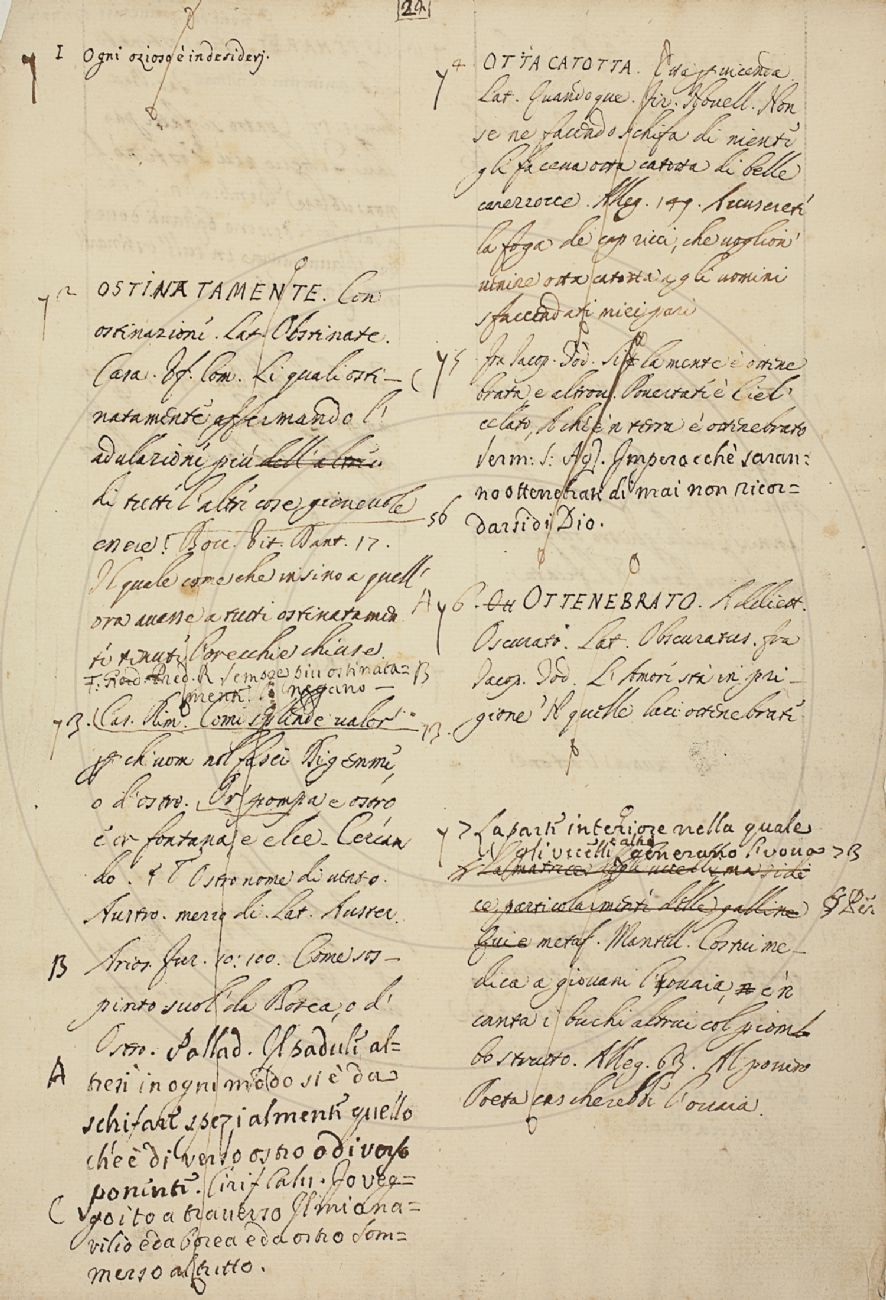 22
y 1 Ogni ozioso è in desiderj.
y 2 OSTINATAMENTE. Con
ostinazione. Lat. Obstinate.
Casa. Uf. Com. Li quali osti-
natamente affermando l'
adulazione più dell'altre
di tutti l'altre cose giovevole
essere. Bocc. Vit. Dant. 17.
Il quale come che insino a quell'
ora avesse a tutti ostinatamen
te tenute l'orecchie chiuse
ostinata=
mente negano
y 3. Cas. Rim. Come splende valor
ch'uom nol fasci Di gemme
o d'ostro. Or pompa e ostro
e or fontana e elce Cercan
do. Ostro nome di vento.
Austro. mezo dì. Lat. Auster.
B Arios. Fur. 10: 100. Come sos-
pinto suol da Borea, o d'
Ostro. Pallad. Il sadule al=
tresì in ogni modo si è da
A
schifare spezialmente quello
ch'è di verso ostro o di verso
ponente. Cirif. Calv. Io veg=
C goito a traverso Il mi a na=
vilio è da borea e da ostro som=
merso al tutto.
y 4 OTTA CATOTTA. Ora, vicenda
Lat. Quandoque. Fir. Novell. Non
se ne facendo schifa di niente
gli faceva otta catotta di belle
carezzocce. Alleg. 149. Accuserete
la foga de capricci, che voglion'
venire otta catotta a gli uomini
sfaccendati miei pari
y 5 fra Jacop. Tod. Si la mente è ottene
brata, e altrov. Povertate è Ciel'
celato, A chi è n terra è ottenebrato
Serm: S: Ag. Imperocchè saran=
no ottenebrati di mai non ricor=
56
darsi di Dio.
y 6 OTTENEBRATO. Addiett.
Oscurato. Lat. Obscuratus. fra
Jacop. Tod. L'Amore stà in pri-
gione 'N quelle laci ottenebrate
y 7 La parte interiore nella quale
gli uccelli generano l'uova > B
La matrice degli uccelli, ma si di
ce particolarmente delle galline
Qui è metaf. Mantell. Costui me-
dica a giovani l'ovaia, e'n
canta i buchi altrui col piomb
bo strutto. Alleg. 63. Al povero
Poeta cascherebbe l'ovaia.